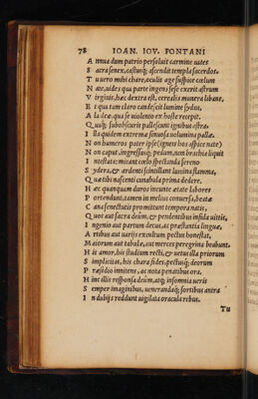 78 IOAN. IOV. PONTANI
A nnua dum patrio persoluit carmine uates
S acra senex, cœtuq; ascendit templa sacerdos.
T u uero mihi chare, oculis age suspice cœlum
N ate, uides qua parte ingens sese exerit astrum
V irginis, hæc dextra est, cerealia munera libans,
E t qua tam claro candescit lumine sydus,
A la dea, qua se uiolento ex hoste recepit.
Q uuq; subobscuris pallescunt ignibus astra:
I lla quidem extrema senuosa uolumina pallæ.
N on humeros pater ipse (ignens hos aspice nate)
N on caput, ingressusq; pedum, non brachia liquit
I ntestata: micant cœlo spectanda sereno
Y dera, & ardenti scintillant lumina flamma,
Q uæ tibi nascenti cunabula prima dedere.
H æc quanquam duros incunte ætate labores
P ortendunt, tamen in melius conuersa, beatæ
C ana senectutis promittunt tempora natis,
Q uot aut sacra deum, & pendentibus insida uittis,
I ngenio aut partum decus, ac præstantia linguæ,
A rtibus aut uarijs excultum pectus honestat,
M aiorum aut tabulæ, aut merces peregrina beabunt.
H is amor, his studium recti, & uetus illa priorum
S implicitas, his chara fides, pectusq; deorum
P ræsidio innitens, ac nota penatibus ora.
H inc illis responsa deum, atq; insomnia ueris
S emper imaginibus, uenerandaq; sortibus antra
I n dubijs reddunt uigilata oracula rebus.
Tu